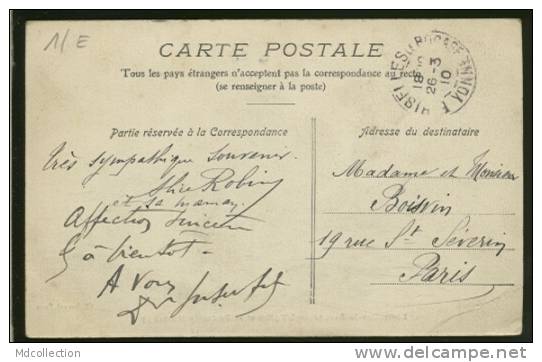 1/E
CARTE POSTALE
Tous les pays étrangers n'acceptent pas la correspondance au recto
(se renseigner à la poste)
18
26-3
10
YONNE
Partie réservée à la Correspondance
Adresse du destinataire
très sympathique souvenir
Robin
et sa maman
Affection sincère
à bientôt -
A vous
Madame et Monsieur
Boisvin
19 rue St Séverin
Paris
MDcollection
www.delcampe.net